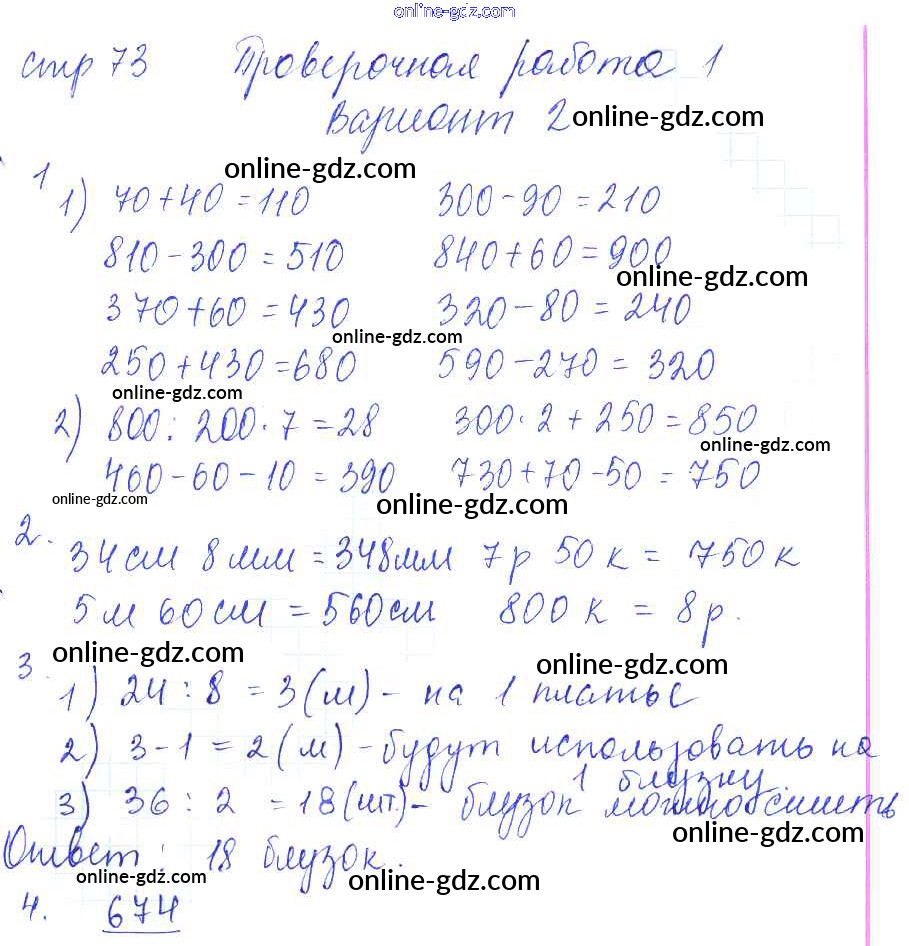 online-gdz.com
стр 73 Проверочная работа 1
Вариант 2 online-gdz.com
online-gdz.com
1
1) 70+40=110 300-90=210
810-300=510 840+60=900
online-gdz.com
370+60=430 320-80=240
online-gdz.com
250+430=680 590-270=320
online-gdz.com
2) 800:200·7=28 300·2+250=850
online-gdz.com
460-60-10=390 730+70-50=750
online-gdz.com online-gdz.com
2.
34см 8мм=348мм 7р 50к=750к
5м 60см=560см 800к=8р.
online-gdz.com
3 online-gdz.com
1) 24:8=3(м)- на 1 платье
2) 3-1=2(м)-будут использовать на
1 блузку.
3) 36:2=18(шт.)- блузок можно сшить
online-gdz.com
Ответ: 18 блузок.
online-gdz.com online-gdz.com
4. 674